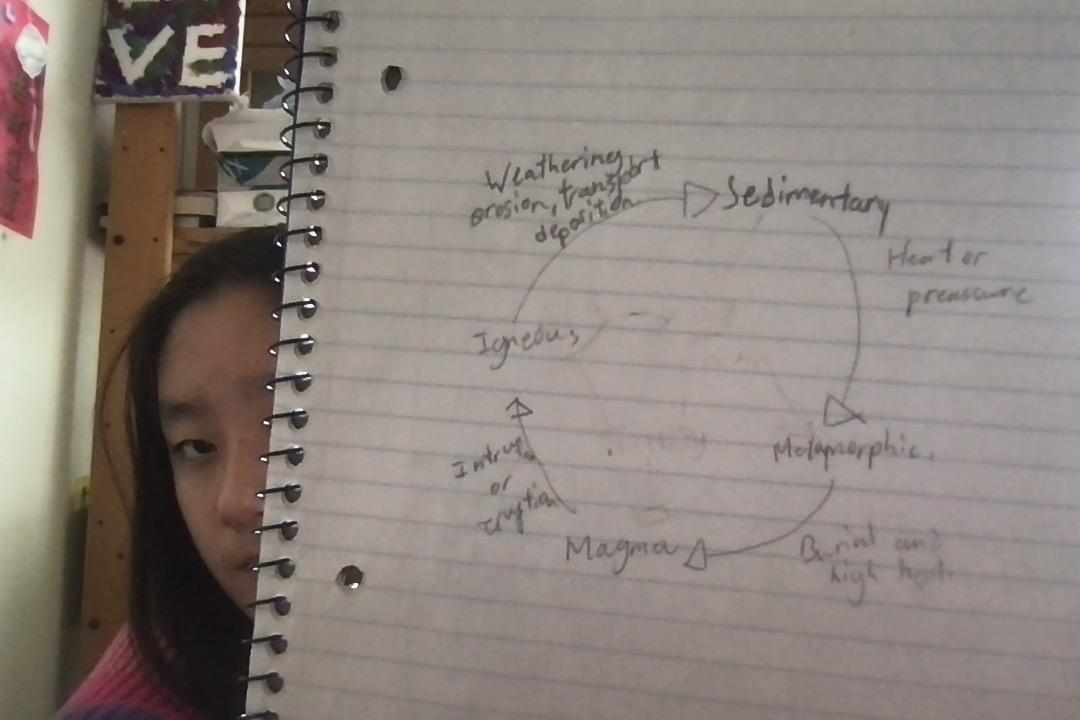 VE
Weathering,
erosion, transport
deposition
Sedimentary
Heat or
preasure
Igneous
Metamorphic.
Intrusion
or
eruption
Magma
Burial and
high heat.